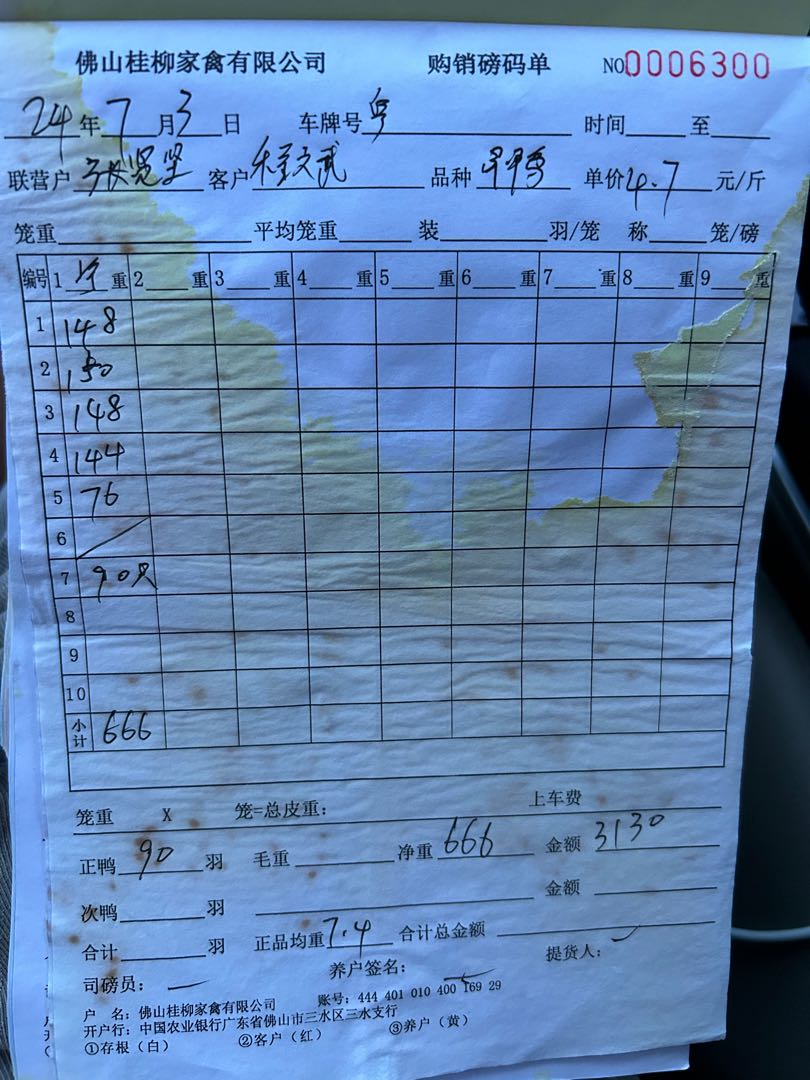 佛山桂柳家禽有限公司 购销磅码单 NO 0006300
24年7月3日 车牌号粤 时间 至
联营户 张宽坚 客户 文武 品种 单价4.7元/斤
笼重 平均笼重 装 羽/笼 称 笼/磅
编号 1 重 2 重 3 重 4 重 5 重 6 重 7 重 8 重 9 重
1 148
2 150
3 148
4 144
5 76
6
7 90只
8
9
10
小计 666
笼重 X 笼=总皮重: 上车费
正鸭 90 羽 毛重 净重 666 金额 3130
次鸭 羽 金额
合计 羽 正品均重 7.4 合计总金额
司磅员: 养户签名: 提货人:
户 名: 佛山桂柳家禽有限公司 账号: 444 401 010 400 169 29
开户行: 中国农业银行广东省佛山市三水区三水支行
①存根(白) ②客户(红) ③养户(黄)